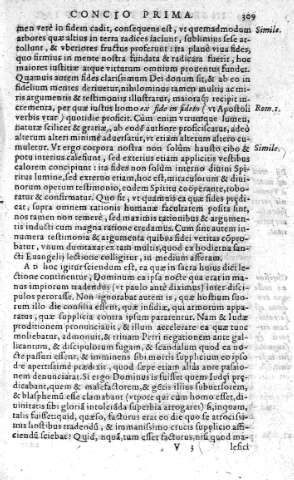 CONCIO PRIMA. 309
men verè in fidem cadit, consequens est, vt quemadmodum Simile.
arbores quæ altius in terra radices iaciunt, sublimius sese at-
tollunt, & vberiores fructus proferunt: ita planè viua fides,
quo firmius in mente nostra fundata & radicata fuerit, hoc
maiores iustitiæ atque virtutum omnium prouentus fundet.
Quamuis autem fides clarissimum Dei donum sit, & ab eo in
fidelium mentes deriuetur, nihilominus tamen multis ac mi-
ris argumentis & testimonijs illustratur, maioraq́; recipit in-
crementa, per quæ iustus homo ex fide in fidem (vt Apostoli Rom.1.
verbis vtar) quotidie proficit. Cùm enim vtrumque lumen,
naturæ scilicet & gratiæ, ab eodem authore proficiscatur, adeò
alterum alteri minimè aduersatur, vt etiam alterum altero cu-
muletur. Vt ergo corpora nostra non solùm hausto cibo & Simile.
potu interiùs calefiunt, sed exterius etiam applicitis vestibus
calorem concipiunt: ita fides non solùm interno diuini Spi-
ritus lumine, sed externo etiam, hoc est, miraculorum & diui-
norum operum testimonio, eodem Spiritu cooperante, robo-
ratur & confirmatur. Quo fit, vt quamuis ea quæ fides prædi-
cat, supra omnem rationis humanæ facultatem posita sint,
nos tamen non temerè, sed maximis rationibus & argumen-
tis inducti cum magna ratione credamus. Cum sint autem in-
numera testimonia & argumenta quibus fidei veritas compro-
batur, vnum dumtaxat ex tam multis, quod ex hodierna san-
cti Euangelij lectione colligitur, in medium afferam.
AD hoc igitur sciendum est, ea quæ in sacra huius diei le-
ctione continentur, Dominum ea ipsa nocte qua erat in ma-
nus impiorum tradendus (vt paulo antè diximus) inter disci-
pulos perorasse. Non ignorabat autem is, quæ hostium suo-
rum illo die consilia essent, quæ insidiæ, qui armorum appa-
ratus, quæ supplicia contra ipsum pararentur. Nam & Iudæ
proditionem pronunciauit, & illum accelerare ea quæ tunc
moliebatur, admonuit, & trinam Petri negationem ante gal-
licantum, & discipulorum fugam, & scandalum quod ea no-
cte passuri essent, & imminens sibi mortis supplicium eo ipso
die apertissimè prædixit, quod sæpe etiam aliàs ante passio-
nem denunciarat. Si ergo Dominus is fuisset quem Iudæi præ-
dicabant, quem & malefactorem, & gentis illius subuersorem,
& blasphemū esse clamabant (vtpote qui cum homo esset, di-
uinitatis sibi gloriā intoleranda superbia arrogaret) si, inquam,
talis fuisset quid, quæso, facturus erat eo die quo se atrocissi-
mis hostibus tradendū, & immanissimo crucis supplicio affi-
ciendū sciebat? Quid, inquā, tum esset facturus, nisi quod ma-
V 3 lefici